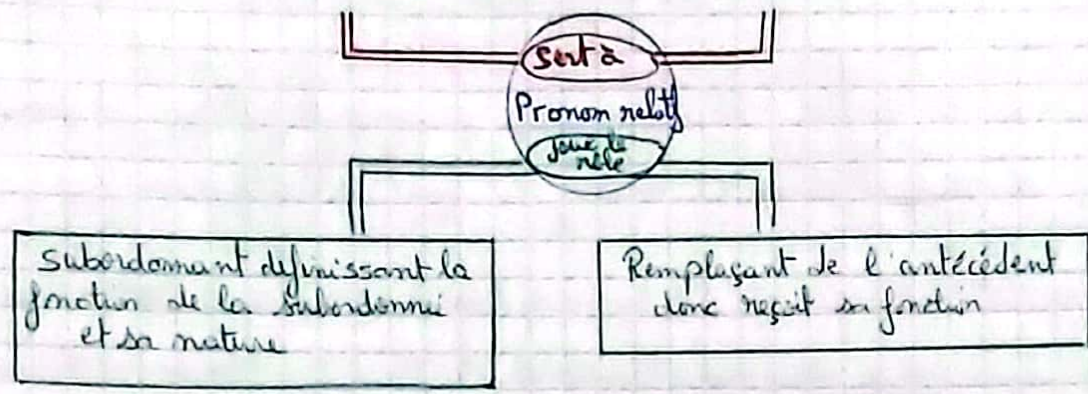 Sert à
Pronom relatif
joue le
rôle
Subordonnant définissant la
fonction de la subordonnée
et sa nature
Remplaçant de l'antécédent
donc reçoit sa fonction